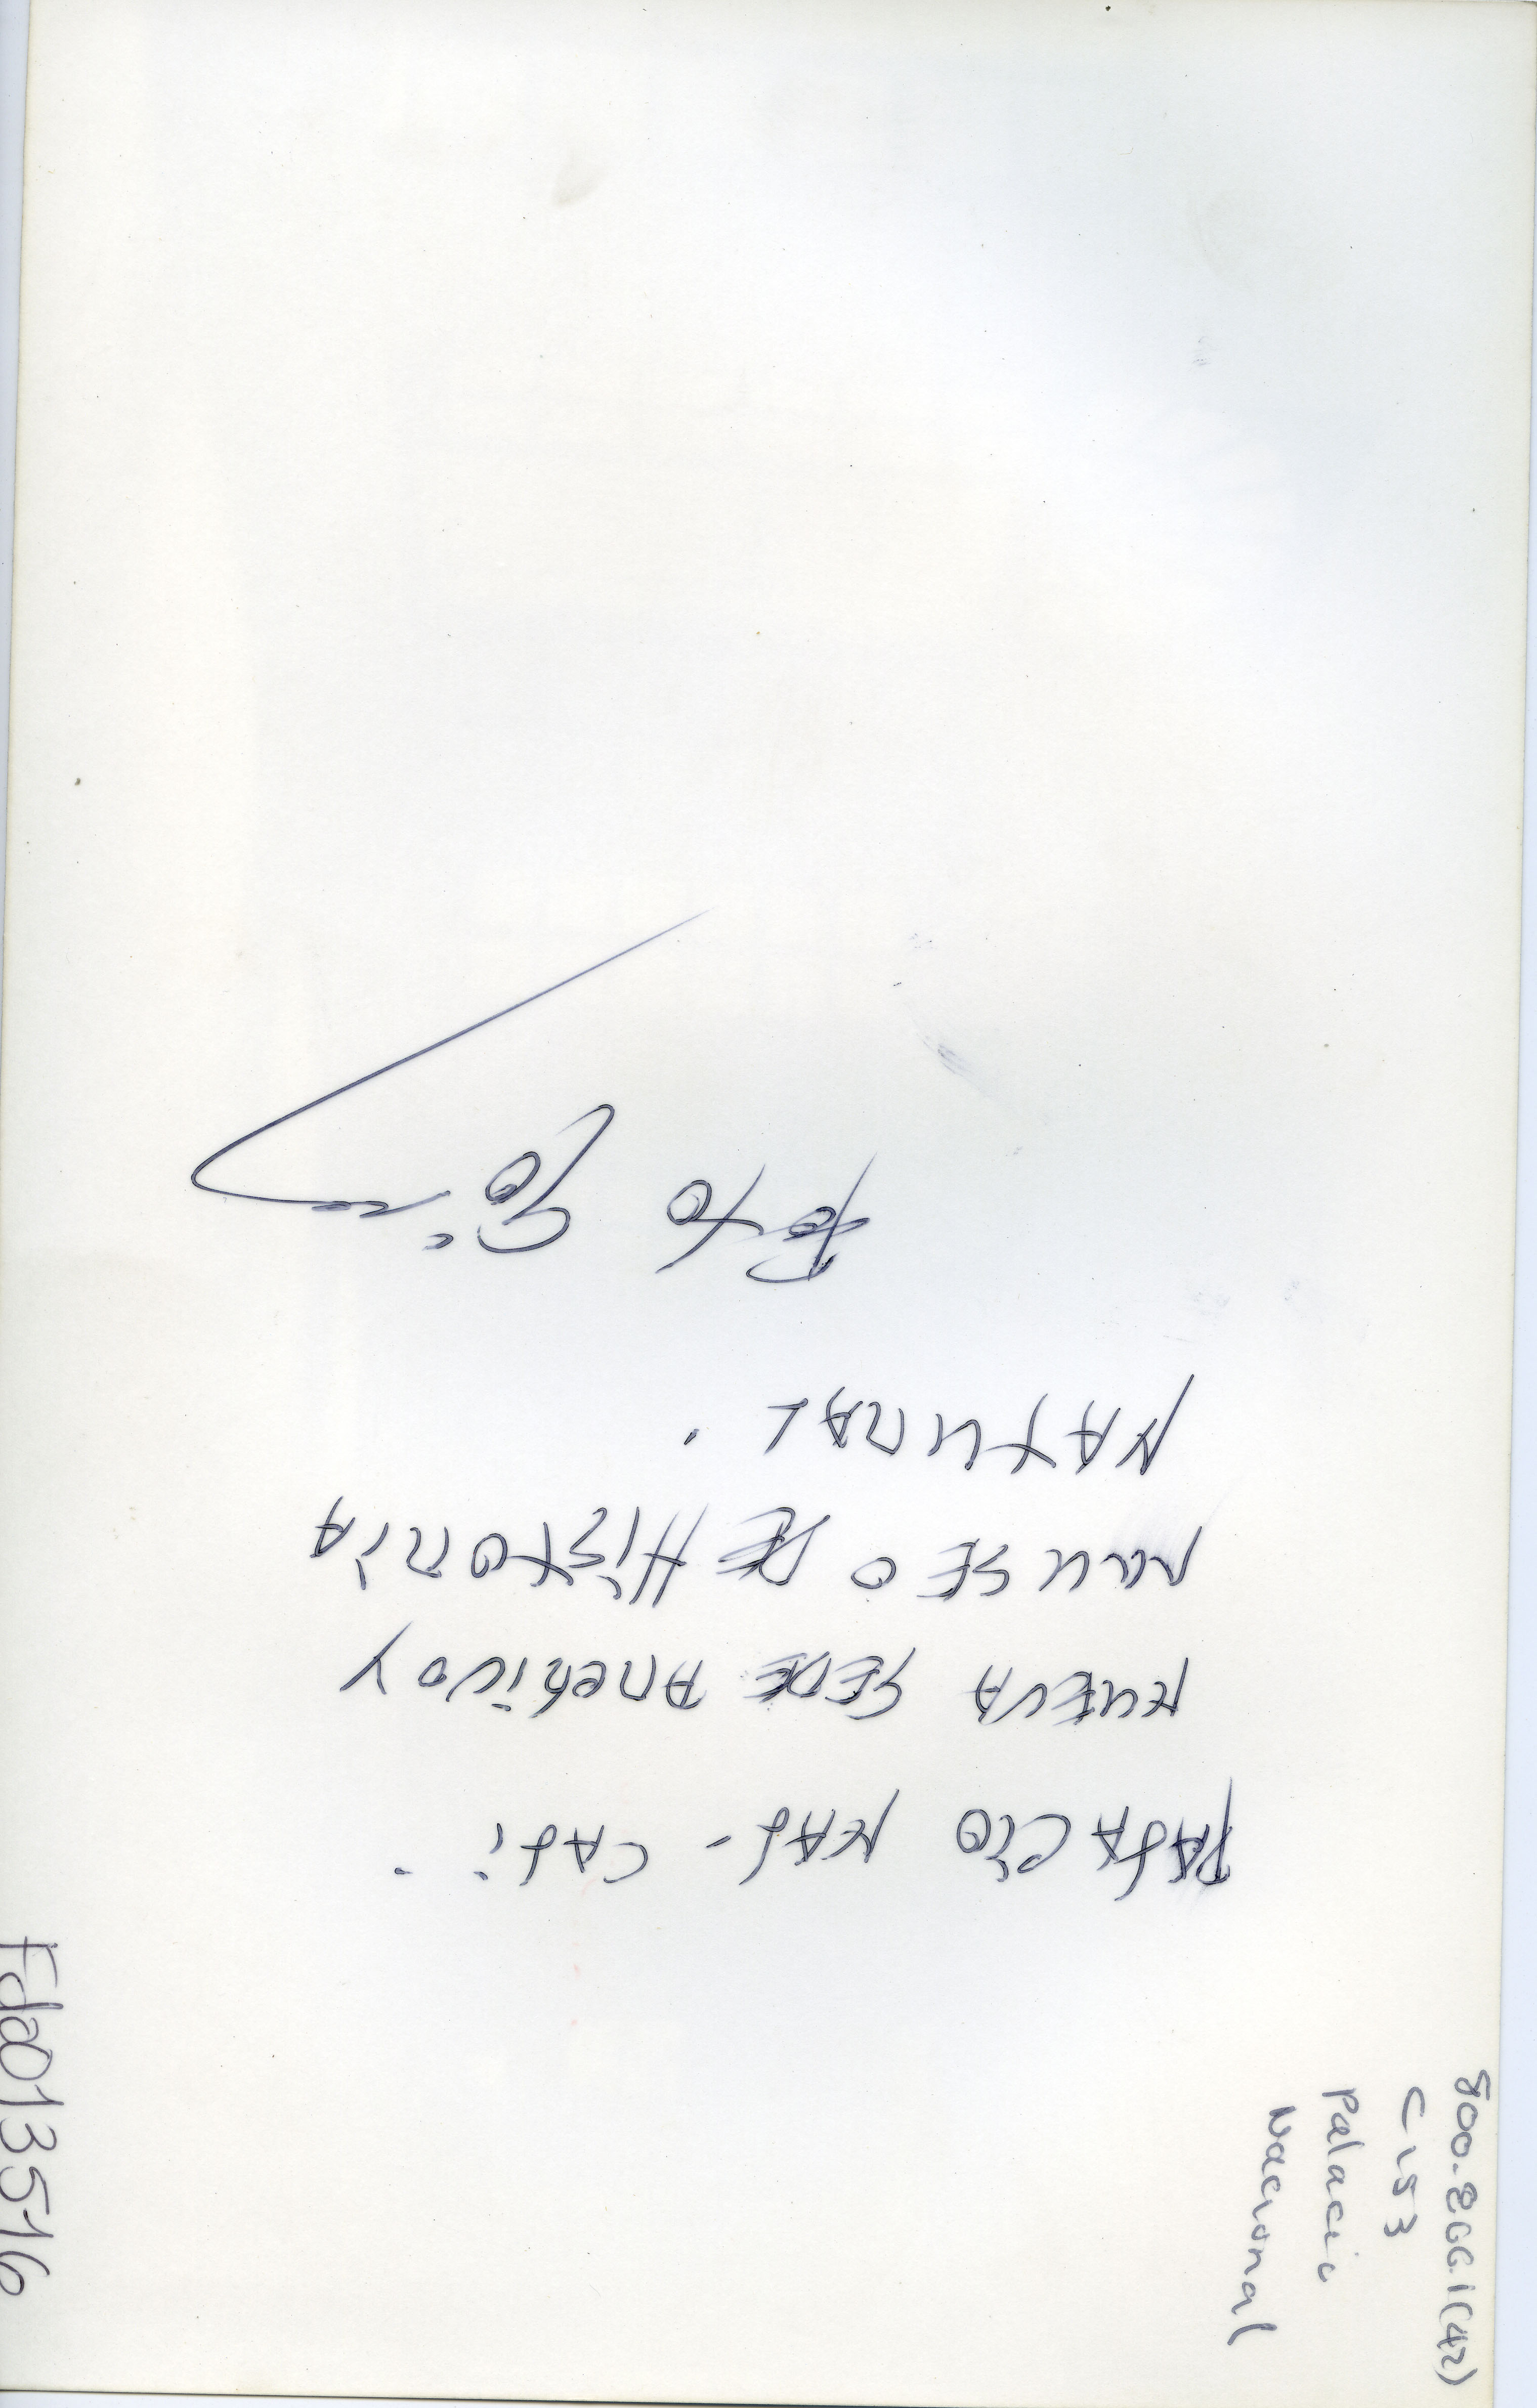 PALACIO NAL - CALI.
NUEVA SEDE ARCHIVO Y
MUSEO DE HISTORIA
NATURAL.
800.866.1(42)
C153
Palacio
Nacional
Fda013516